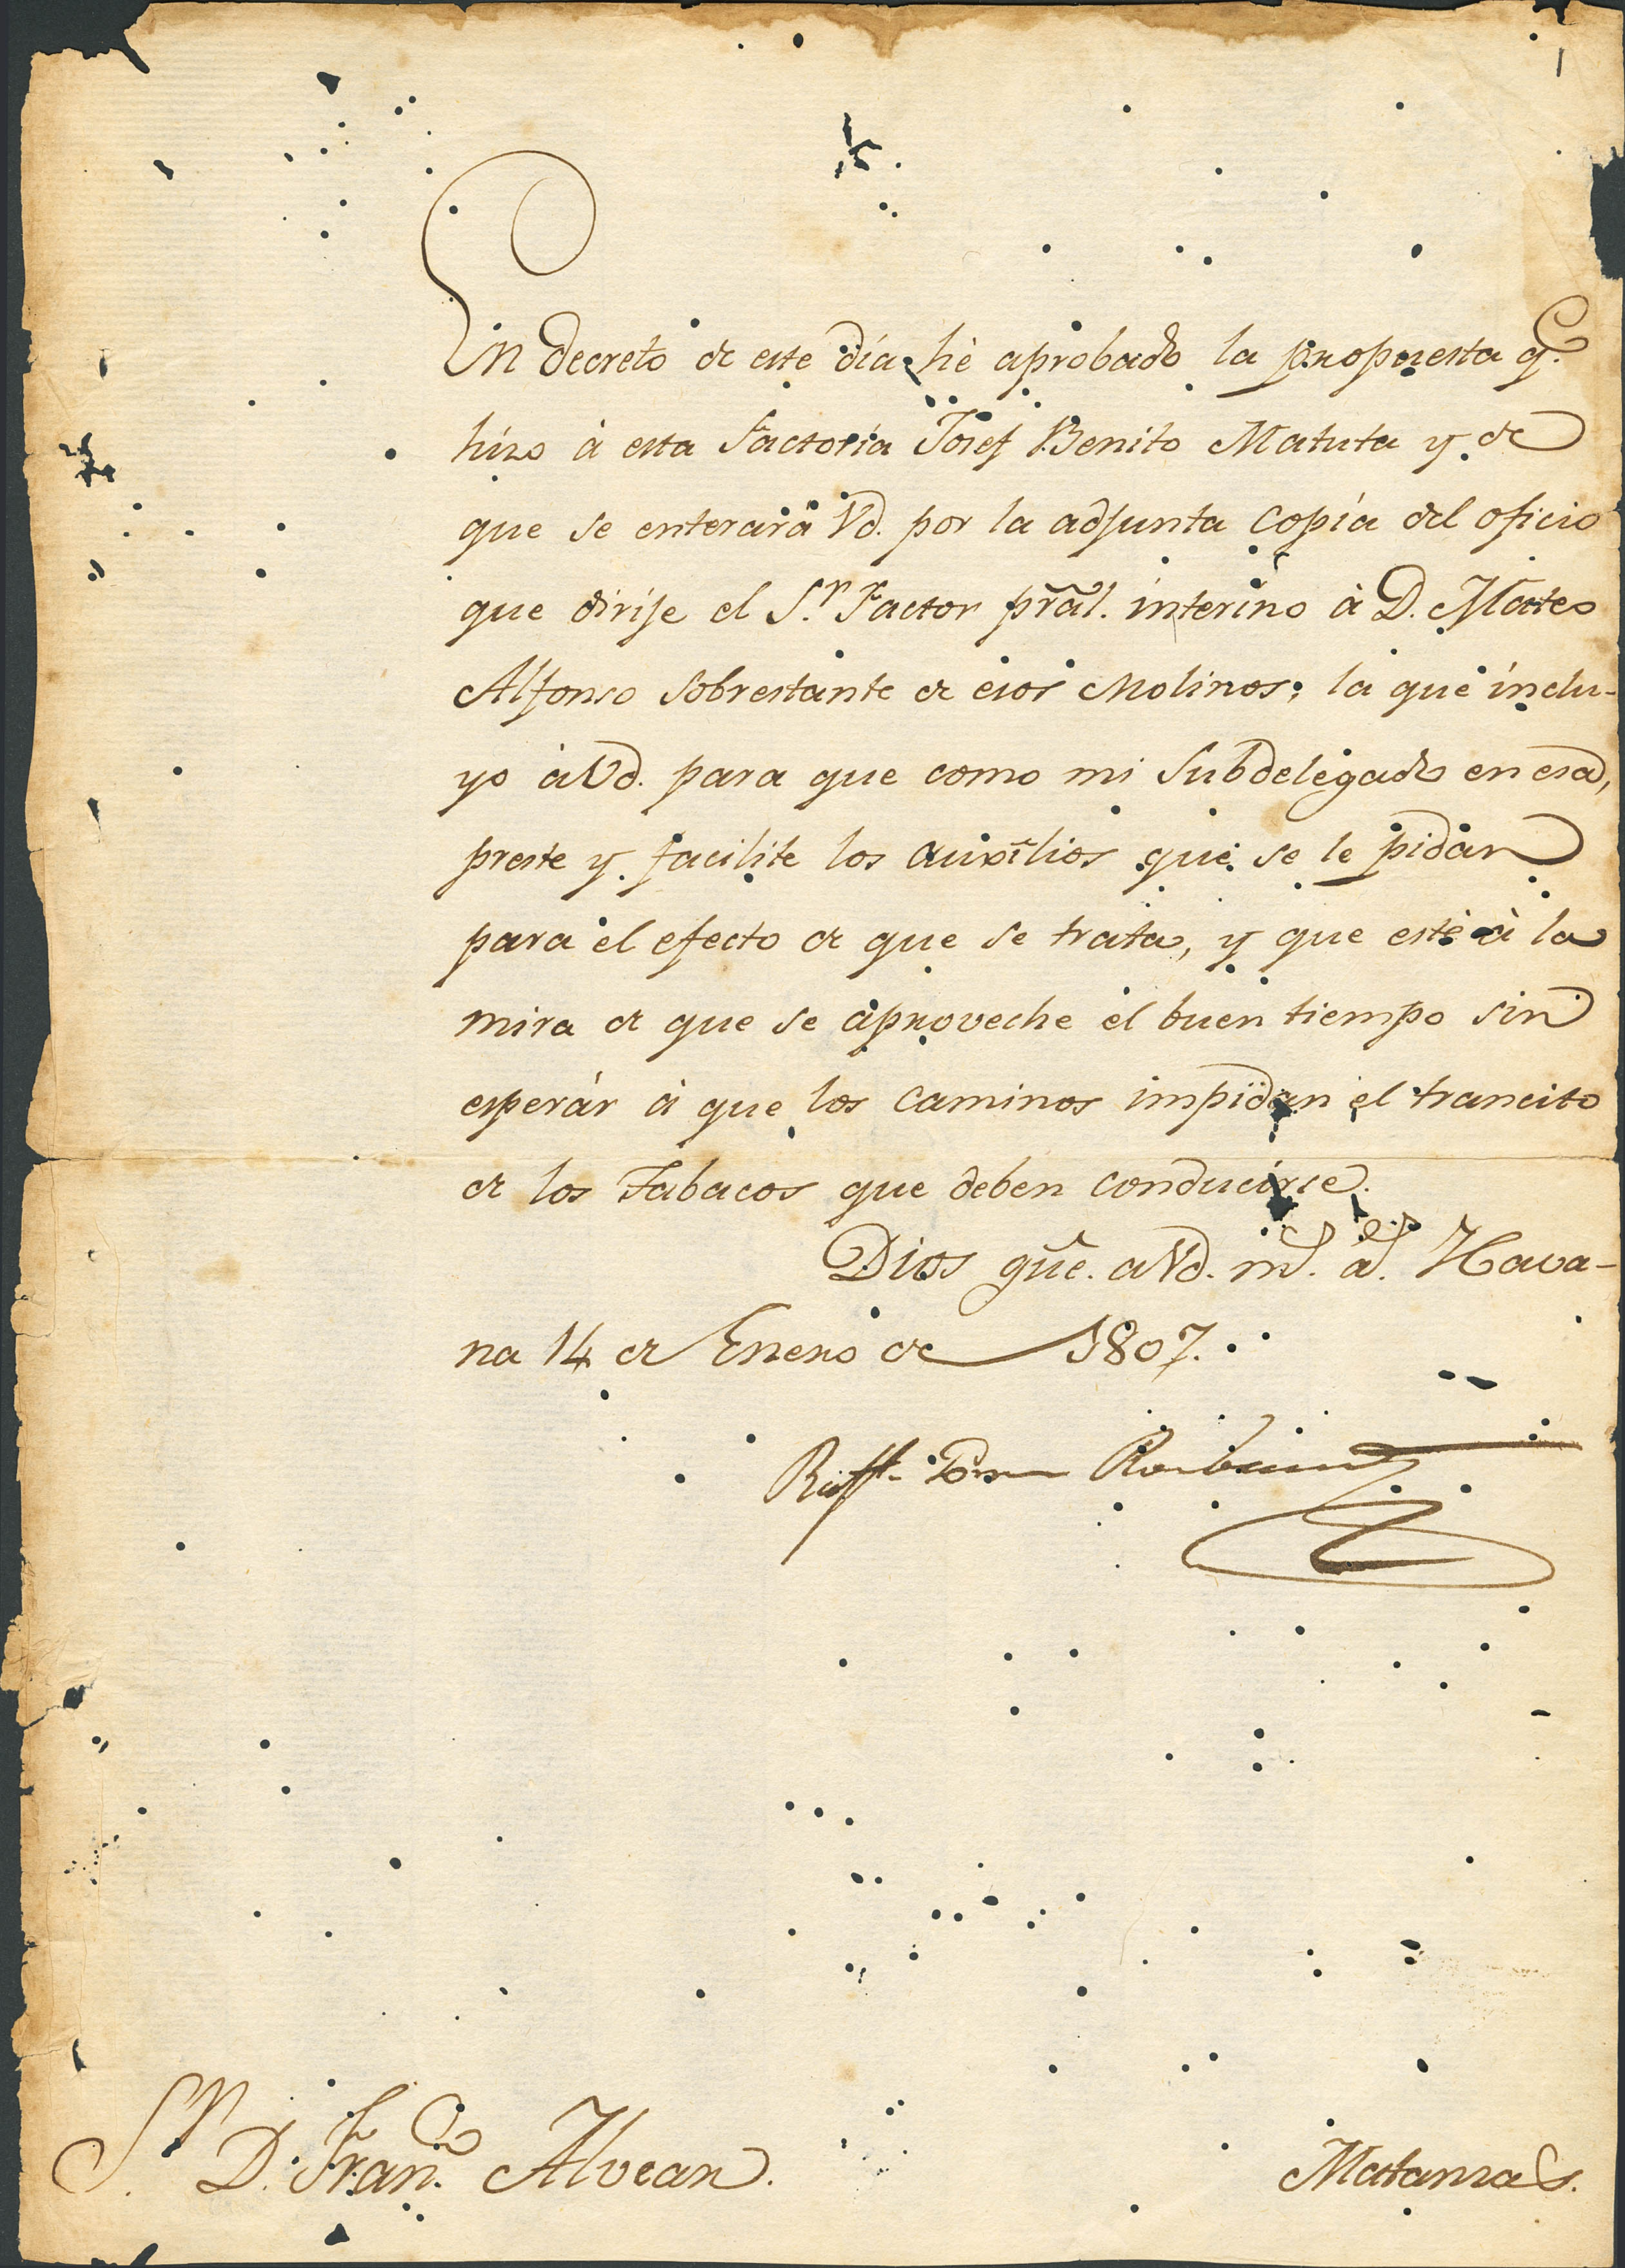 1
En decreto de este día hè aprobado la propuesta q.e
hizo à esta Factoría Josef Benito Matuta y de
que se enterarà Vd. por la adjunta copia del oficio
que dirije el S.r Factor prãl. interino à D. Mateo
Alfonso Sobrestante de esos Molinos; la que inclu-
yo à Vd. para que como mi Subdelegado en esa,
preste y facilite los auxîlios que se le pidan
para el efecto de que se trata, y que estè à la
mira de que se aproveche el buen tiempo sin
esperár à que los caminos impidan el trancito
de los Tabacos que deben conducirse.
Dios gũe. a Vd. m.s a.s Hava-
na 14 de Enero de 1807.
Raf.l
S.r D. Fran.co Alvear.
Matanzas.